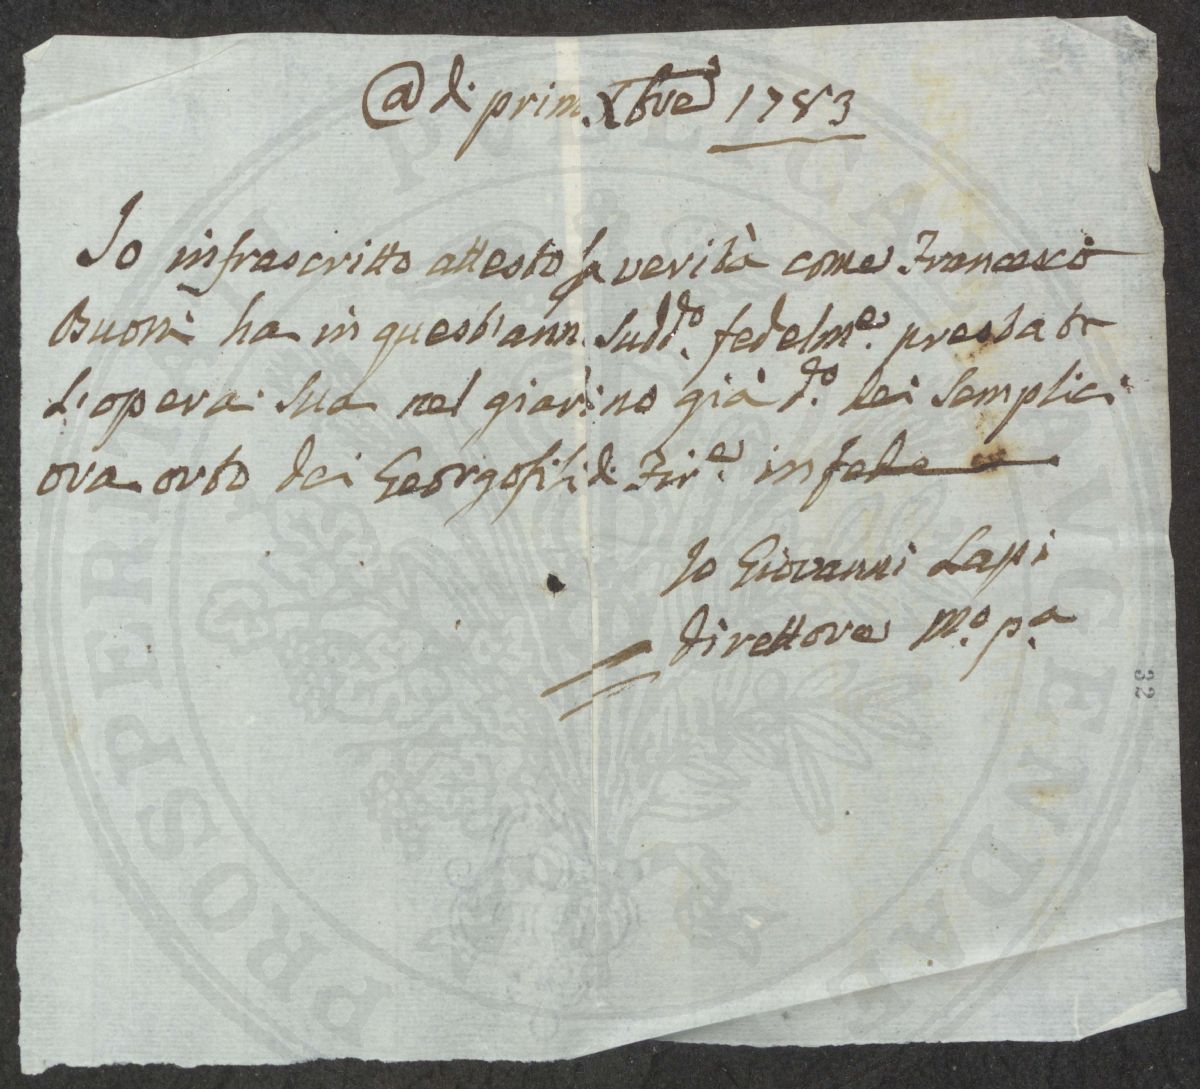 @ di prim. Xbre 1783
Io infrascritto attesto la verità come Francesco
Buoni ha in quest'ann. Sudd.o fedelm.e prestato
L'opera Sua nel giardino già d.o dei Semplici
ora orto dei Georgofili di Fir.e in fede
Io Giovanni Lapi
direttore M.o p.a
32
PROSPERITATI PUBLICAE AUGENDAE